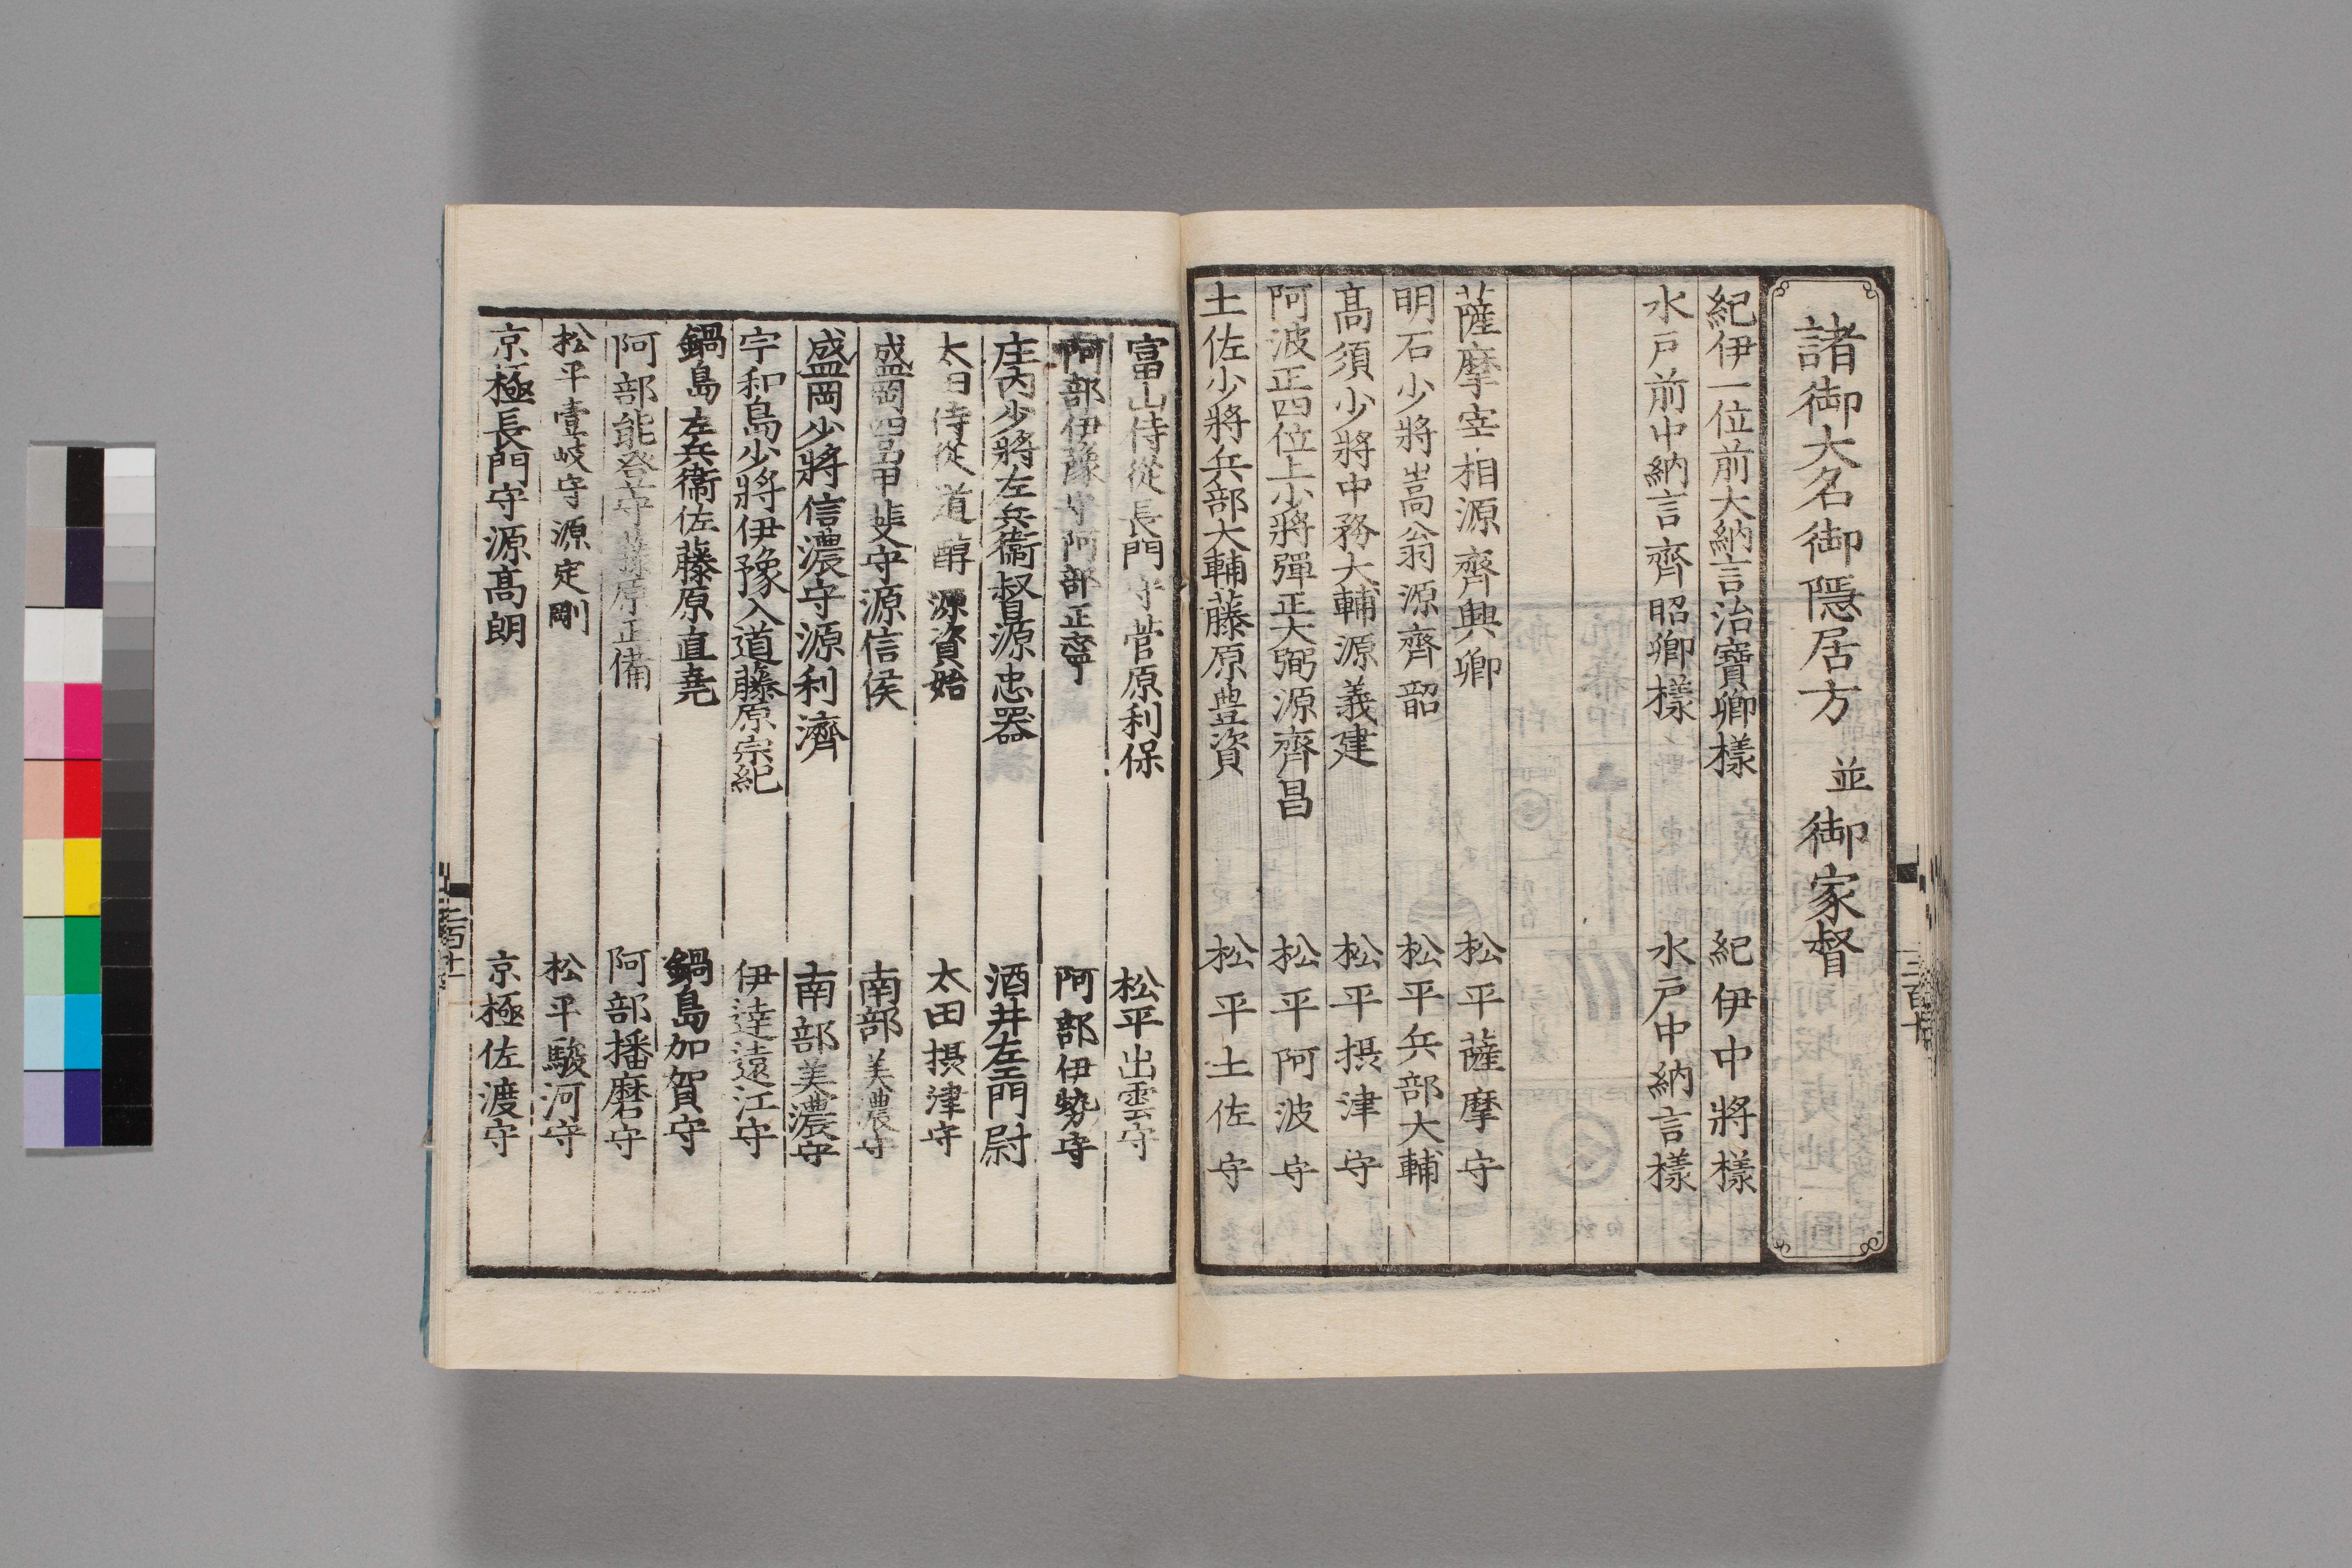 諸御大名御隱居方 並 御家督
紀伊一位前大納言治寶卿樣 紀伊中將樣
水戸前中納言齊昭卿樣 水戸中納言樣
薩摩宰相源齊興卿 松平薩摩守
明石少將嵩翁源齊韶 松平兵部大輔
髙須少將中務大輔源義建 松平摂津守
阿波正四位上少將彈正大弼源齊昌 松平阿波守
土佐少將兵部大輔藤原豊資 松平土佐守
三百十
富山侍從長門守菅原利保 松平出雲守
阿部伊豫守阿部正寧 阿部伊勢守
庄内少將左兵衞督源忠器 酒井左衛門尉
太田侍從道醇源資始 太田摂津守
盛岡四品甲斐守源信侯 南部美濃守
盛岡少將信濃守源利濟 南部美濃守
宇和島少將伊豫入道藤原宗紀 伊達遠江守
鍋島左兵衞佐藤原直堯 鍋島加賀守
阿部能登守藤原正備 阿部播磨守
松平壹岐守源定剛 松平駿河守
京極長門守源髙朗 京極佐渡守